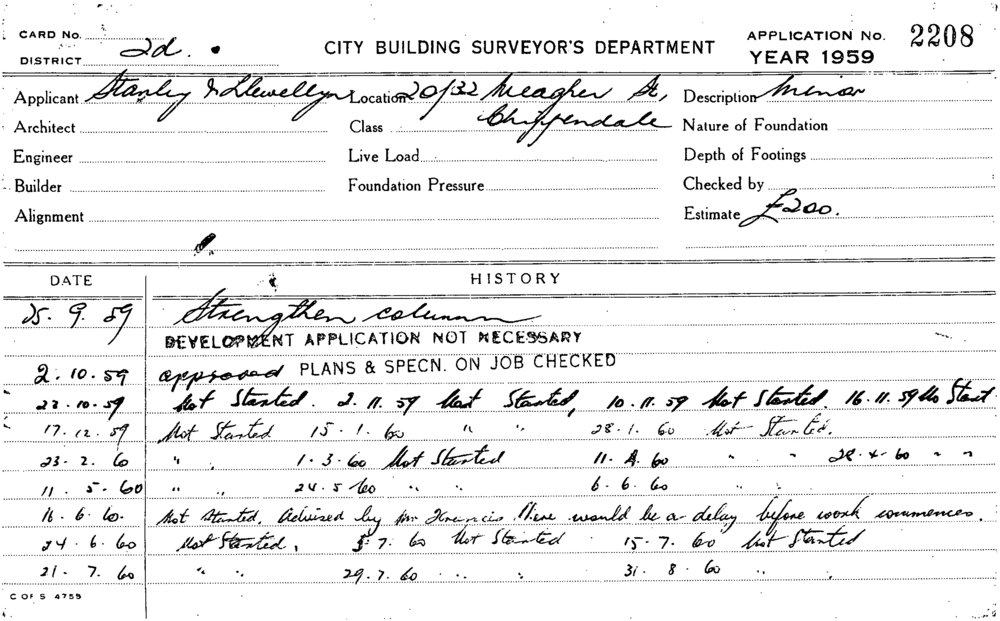 CARD No.
DISTRICT 2d.
CITY BUILDING SURVEYOR'S DEPARTMENT
APPLICATION No. 2208
YEAR 1959
Applicant Stanley & Llewellyn Location 20/32 Meagher St, Description Minor
Architect Class Chippendale Nature of Foundation
Engineer Live Load Depth of Footings
Builder Foundation Pressure Checked by
Alignment Estimate £200.
DATE HISTORY
25. 9. 59 Strengthen column
DEVELOPMENT APPLICATION NOT NECESSARY
2. 10. 59 approved PLANS & SPECN. ON JOB CHECKED
22. 10. 59 Not Started. 2. 11. 59 Not Started, 10. 11. 59 Not Started. 16. 11. 59 No Start.
17. 12. 59 Not Started 15 - 1. 60 " " 28. 1. 60 Not Started.
23 - 2. 60 " " 1 - 3 - 60 Not Started 11. 4. 60 " " 28 - 4 - 60 " "
11. 5 - 60 " " 24. 5 60 " " 6 - 6. 60 " "
16. 6. 60. Not Started. Advised by Mr Francis there would be a delay before work commences.
24. 6. 60 Not Started, 7. 60 Not Started 15 - 7. 60 Not Started
21 - 7. 60 " " 29. 7. 60 " " 31. 8. 60 "
C OF S 4759